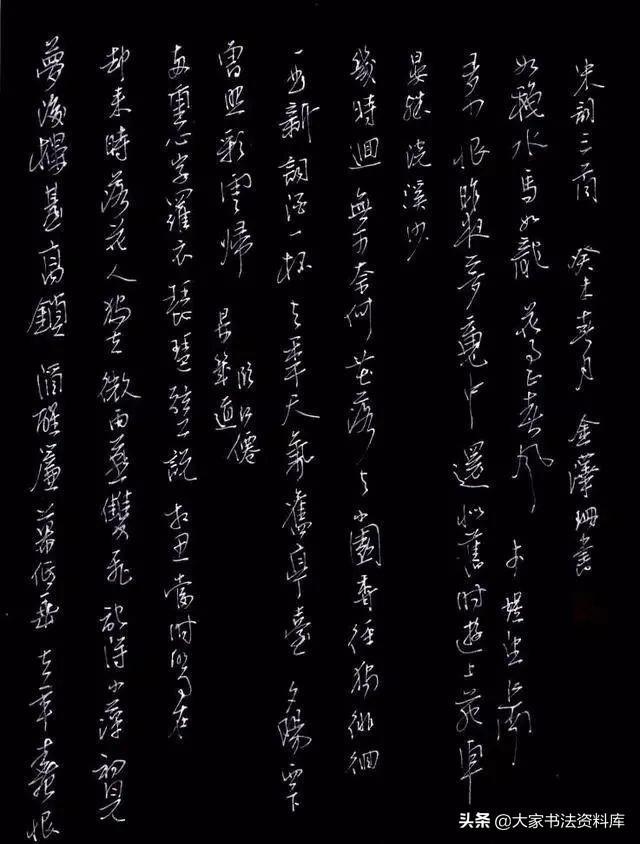 夢後樓臺高鎖 酒醒簾幕低垂 去年春恨
却来時落花人獨立微雨燕雙飛記得小蘋初見
兩重心字羅衣琵琶弦上說相思當時明月在
曾照彩雲歸 晏幾道
臨江僊
一曲新詞酒一杯去年天氣舊亭臺夕陽西下
幾時迴無可奈何花落去小園香徑獨徘徊
晏殊浣溪沙
多少恨昨夜夢魂中還似舊時遊上苑車
如流水馬如龍花月正春風 李煜望江南
宋詞三首 癸巳春月 金澤珊書
头条 @大家书法资料库